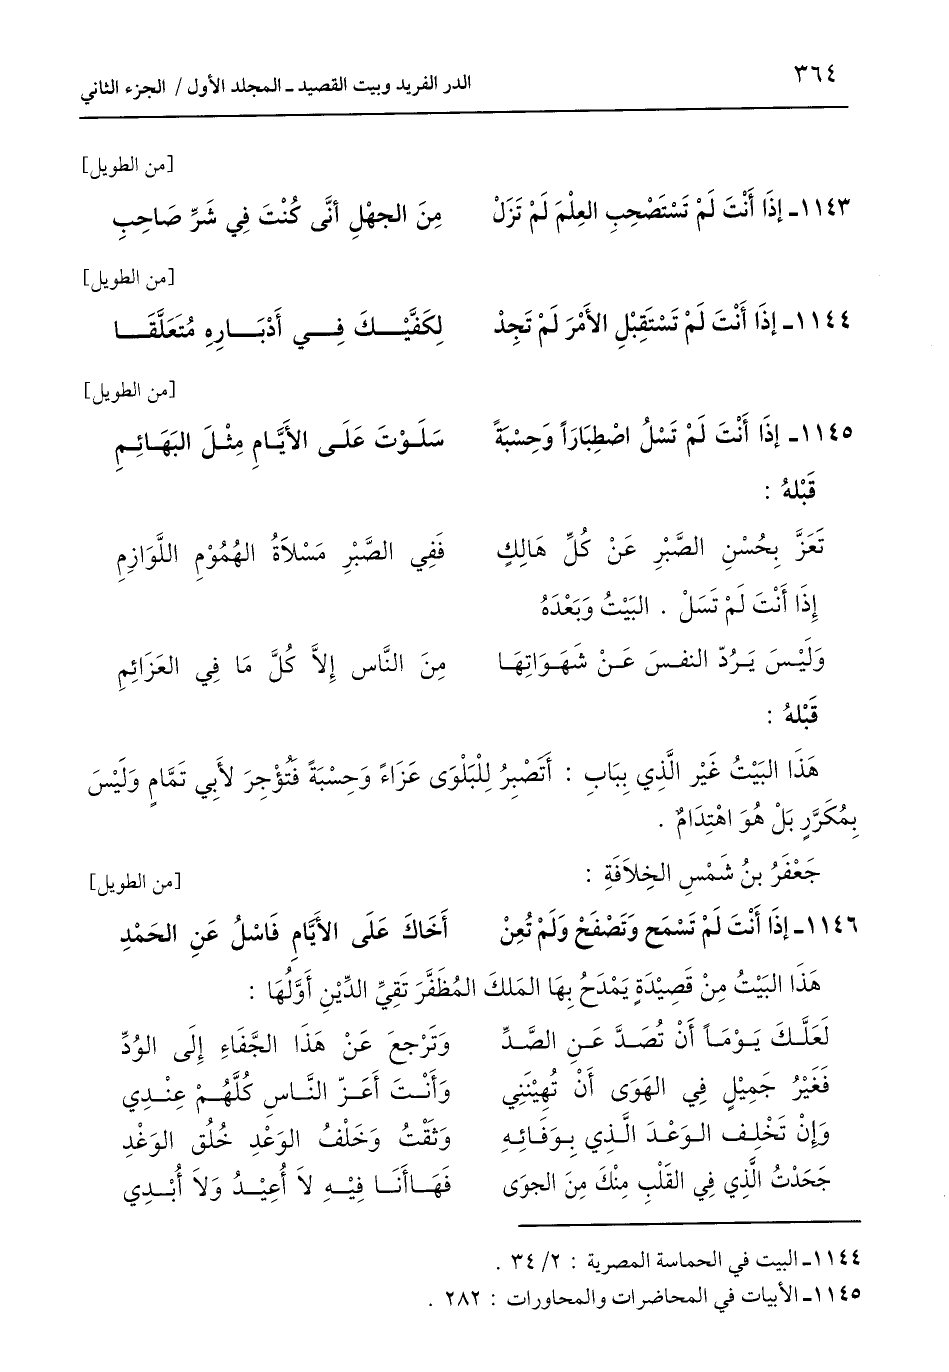 ٣٦٤ الدر الفريد وبيت القصيد ـ المجلد الأول / الجزء الثاني
[من الطويل]
١١٤٣ـ إِذَا أَنْتَ لَمْ تَسْتَصْحِبِ العِلْمَ لَمْ تَزَلْ مِنَ الجهْلِ أنَّى كُنْتَ فِي شَرِّ صَاحِبِ
[من الطويل]
١١٤٤ـ إِذَا أَنْتَ لَمْ تَسْتَقِبْلِ الأَمْرَ لَمْ تَجِدْ لِكَفَّيْـكَ فِـي أَدْبَـارِهِ مُتَعَلَّقَـا
[من الطويل]
١١٤٥ـ إِذَا أَنْتَ لَمْ تَسْلُ اصْطِبَاراً وَحِسْبَةً سَلَوْتَ عَلَى الأَيَّامِ مِثْلَ البَهَائِمِ
قَبْلهُ :
تَعَزَّ بِحُسْنِ الصَّبْرِ عَنْ كُلِّ هَالِكٍ فَفِي الصَّبْرِ مَسْلاَةُ الهُمُوْمِ اللَّوَازِمِ
إِذَا أَنْتَ لَمْ تَسَلْ . البَيْتُ وَبَعْدَهُ
وَلَيْسَ يَرُدّ النفسَ عَنْ شَهَوَاتِهَا مِنَ النَّاسِ إِلاَّ كُلَّ مَا فِي العَزَائِمِ
قَبْلهُ :
هَذَا البَيْتُ غَيْر الَّذِي بِبَابِ : أَتَصْبُر لِلْبَلْوَى عَزَاءً وَحِسْبَةً فَتُؤْجِرَ لأَبِي تَمَّامٍ وَلَيْسَ
بِمُكَرَّرٍ بَلْ هُوَ اهْتِدَامٌ .
جَعْفَرُ بنُ شَمْسِ الخِلاَفَةِ : [من الطويل]
١١٤٦ـ إِذَا أَنْتَ لَمْ تَسْمَح وَتَصْفَحْ وَلَمْ تُعِنْ أَخَاكَ عَلَى الأَيَّامِ فَاسْلُ عَنِ الحَمْدِ
هَذَا البَيْتُ مِنْ قَصِيْدَةٍ يَمْدَحُ بِهَا المَلكَ المُظَفَّرَ تَقِيَّ الدِّيْنِ أَوَّلُهَا :
لَعَلَّـكَ يَـوْمَـاً أَنْ تُصَـدَّ عَـنِ الصَّـدِّ وَتَرْجعَ عَنْ هَذَا الجَّفَاءِ إِلَى الوُدِّ
فَغَيْرُ جَمِيْلٍ فِي الهَوَى أَنْ تُهِيْنَنِي وَأَنْتَ أَعَزّ النَّاسِ كُلّهُمْ عِنْدِي
وَإِنْ تَخْلِف الوَعْدَ الَّذِي بِوَفَائِهِ وَثقْتُ وَخَلْفُ الوَعْدِ خُلُق الوَغْدِ
جَحَدْتُ الَّذِي فِي القَلْبِ مِنْكَ مِنَ الجوَى فَهَاأَنَا فِيْهِ لاَ أُعِيْدُ وَلاَ أُبْدِي
١١٤٤ـ البيت في الحماسة المصرية : ٢/ ٣٤ .
١١٤٥ـ الأبيات في المحاضرات والمحاورات : ٢٨٢ .